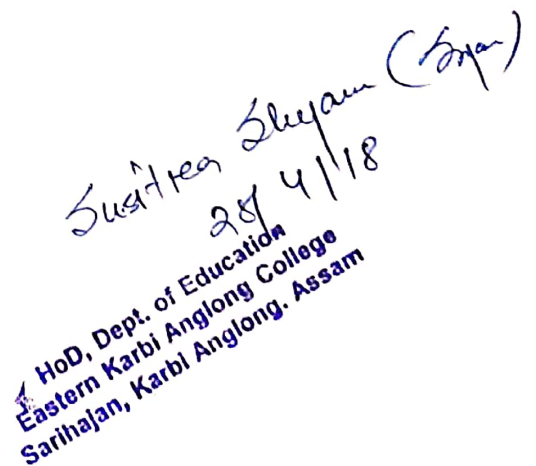 Susitrea Shyam (Syam)
28/4/18
HoD, Dept. of Education
Eastern Karbi Anglong College
Sarihajan, Karbi Anglong. Assam